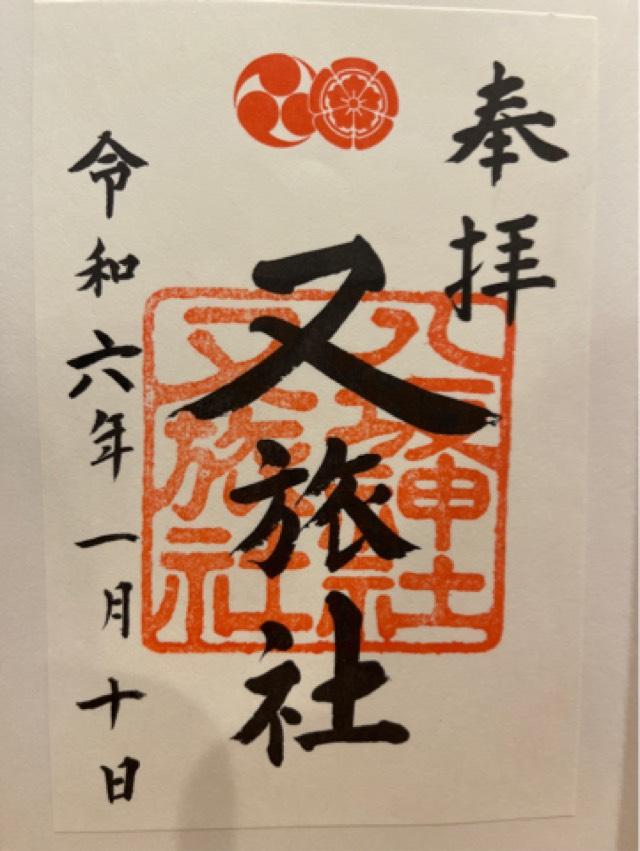 奉拝
又旅社
八坂神社
又旅社
令和六年一月十日